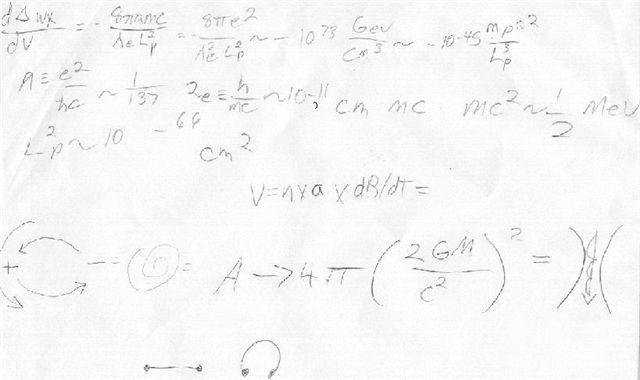 dΔwx/dV = - 8πmc/λe L²p = - 8πe²/λ²e L²p ~ - 10^73 Gev/cm³ ~ - 10^-45 mpc²/L³p
A ≡ e²/ħc ~ 1/137 λe ≡ ħ/mc ~ 10^-11 cm mc mc² ~ 1/2 MeV
L²p ~ 10^-66 cm²
V = n x a x dB/dt =
+ — = A → 4π (2GM/c²)² =